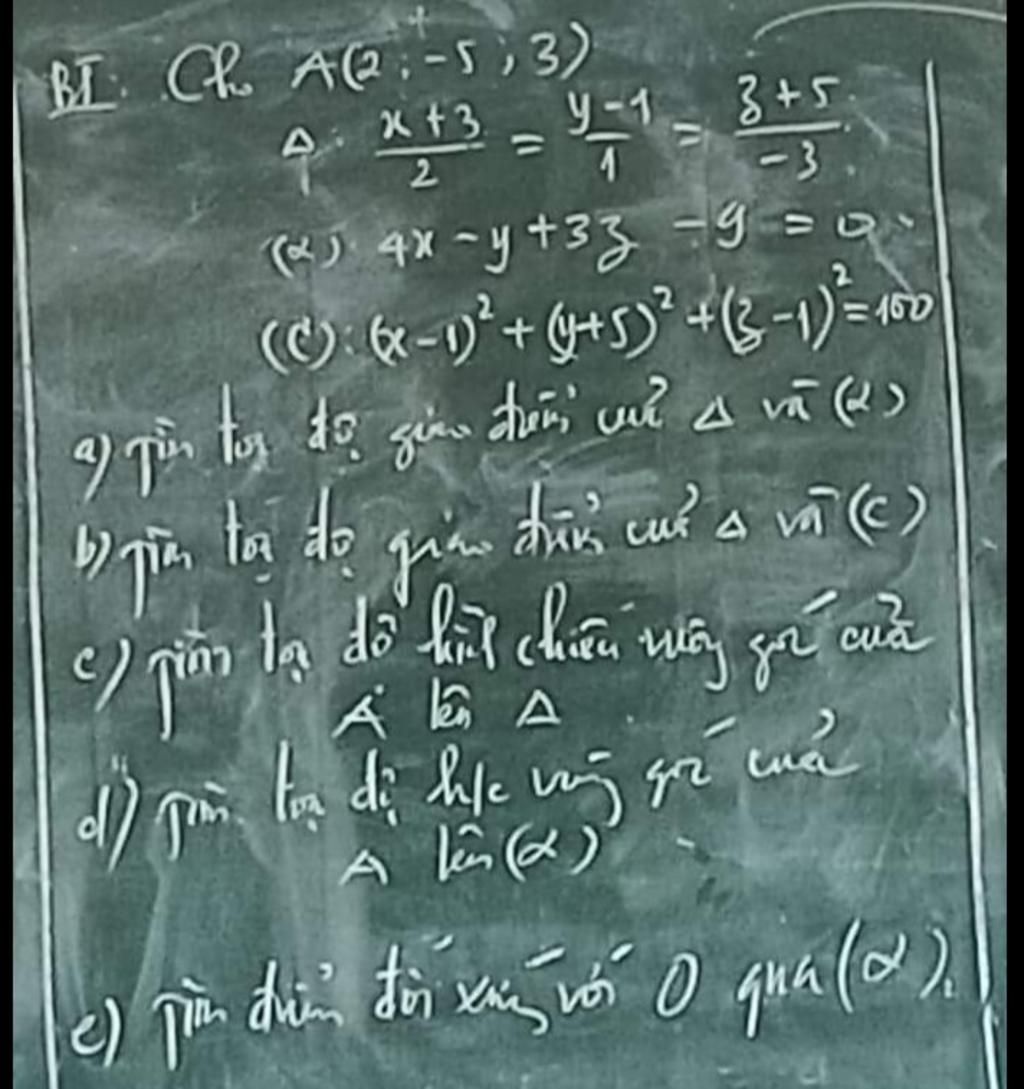 BI. Cho A(2; -5; 3)
Δ: x+3/2 = y-1/1 = z+5/-3
(α): 4x - y + 3z - 9 = 0
(C): (x-1)² + (y+5)² + (z-1)² = 100
a) Tìm tọa độ giao điểm của Δ và (α)
b) Tìm tọa độ giao điểm của Δ và (C)
c) Tìm tọa độ hình chiếu vuông góc của
A lên Δ
d) Tìm tọa độ h/c vuông góc của
A lên (α)
e) Tìm điểm đối xứng với O qua (α).